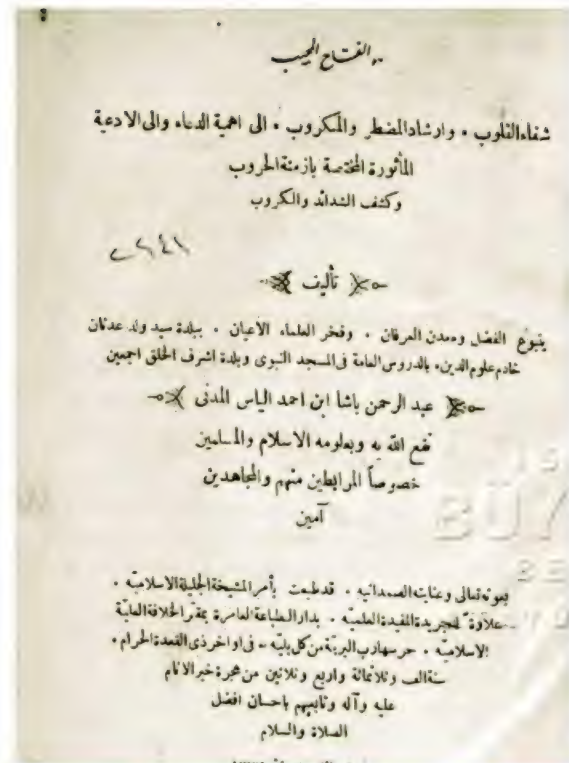 الفتاح المجيب
شفاء القلوب • وارشاد المضطر والمكروب • الى اهمية الدعاء والى الادعية
المأثورة المختصة بازمنة الحروب
وكشف الشدائد والكروب
٢٦٤١
تأليف
ينبوع الفضل ومعدن العرفان • وفخر العلماء الأعيان • ببلدة سيد ولد عدنان
خادم علوم الدين، بالدروس العامة فى المسجد النبوى وبلدة اشرف الخلق اجمعين
عبد الرحمن باشا ابن احمد الياس المدنى
نفع الله به وبعلومه الاسلام والمسلمين
خصوصاً المرابطين منهم والمجاهدين
آمين
بعونه تعالى وعنايته الصمدانيه • قد طبعت بأمر المشيخة الجليلة الاسلاميه •
علاوة للجريدة المفيدة العلميه • بدار الطباعة العامرة بمقر الخلافة العليّة
الاسلاميه • حرسها رب البرية من كل بليه • فى اواخر ذى القعدة الحرام •
سنة الف وثلاثمائة واربع وثلاثين من هجرة خير الانام
عليه وآله وتابعيهم باحسان افضل
الصلاة والسلام